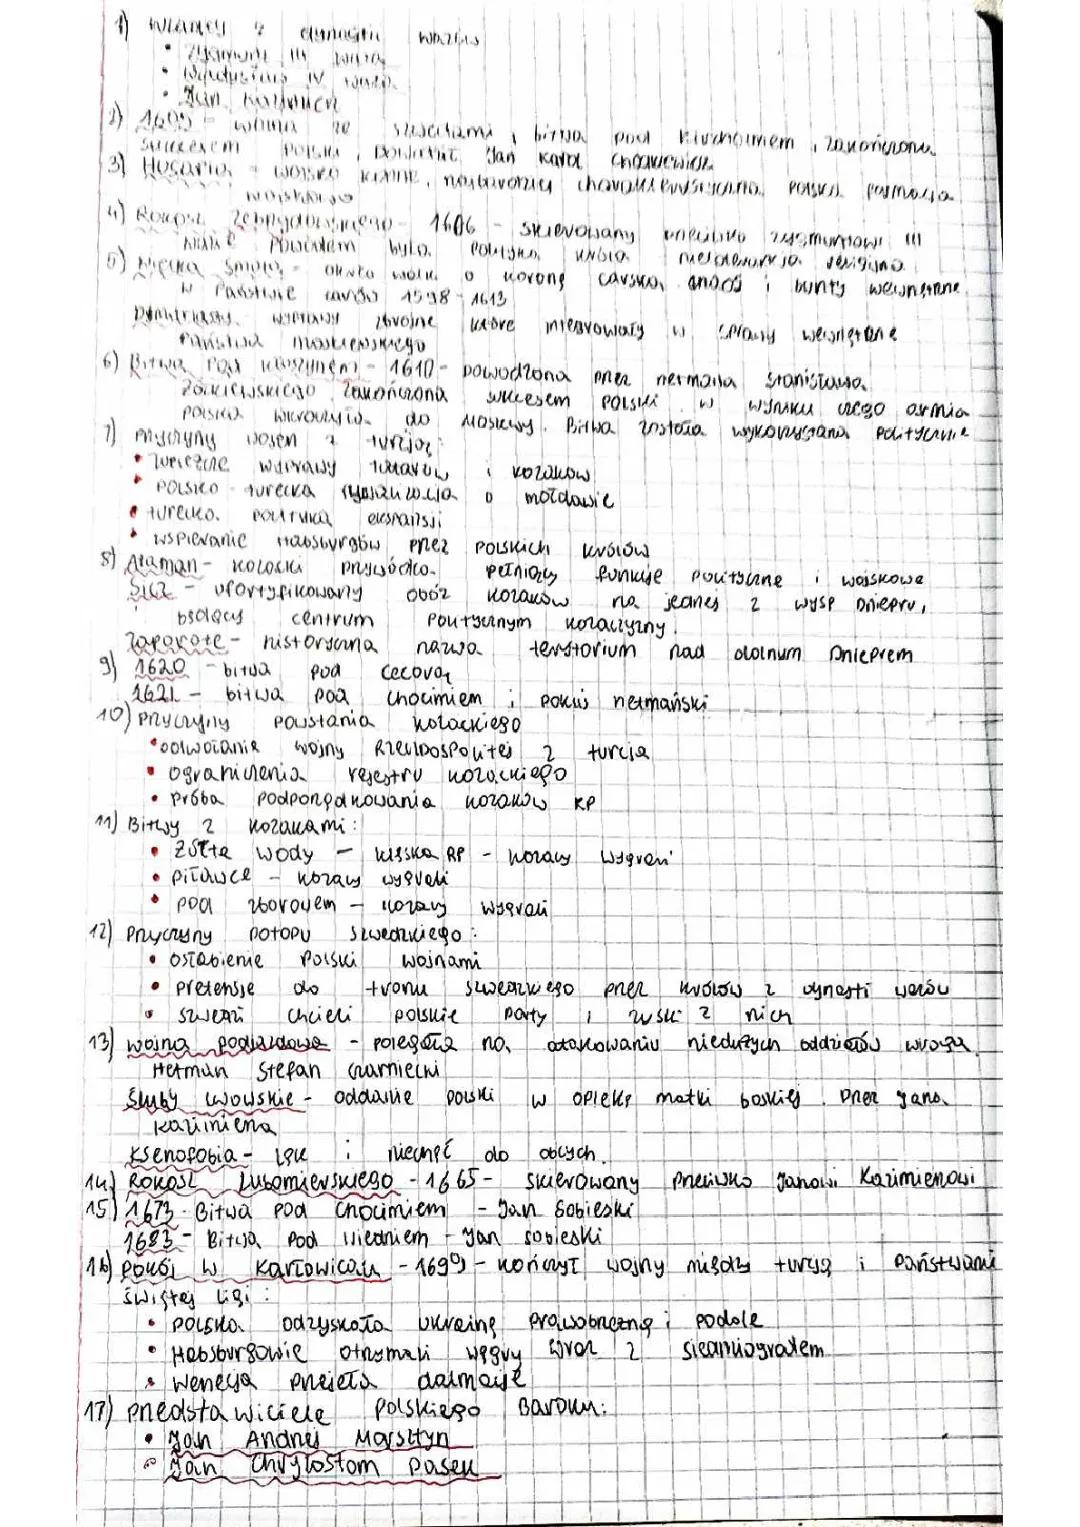 1) Władcy z dynastii Wazów
• Zygmunt III Waza
• Władysław IV Waza
• Jan Kazimierz
2) 1605 - wojna ze szwedami, bitwa pod Kircholmem, zakończona
sukcesem Polski, Dowódził Jan Karol Chodkiewicz
3) Husaria - wojsko konne, najbardziej charakterystyczna polska formacja
wojskowa
4) Rokosz Zebrzydowskiego - 1606 - skierowany przeciwko Zygmuntowi III
Wazie Powodem była polityka króla nietolerancja religijna
5) Wielka smuta - okres walki o koronę carską, anarchii i bunty wewnętrzne
w Państwie carów 1598 - 1613
Dymitriady wyprawy zbrojne które interweniowały w sprawy wewnętrzne
Państwa moskiewskiego
6) Bitwa pod Kłuszynem - 1610 - dowodzona przez hetmana Stanisława
Żółkiewskiego zakończona sukcesem polski w wyniku czego armia
polska wkroczyła do Moskwy. Bitwa została wykorzystana politycznie
7) Przyczyny wojen z turcją:
• łupieżcze wyprawy tatarów i kozaków
• Polsko - turecka rywalizacja o mołdawie
• turecka polityka ekspansji
• wspieranie Habsburgów przez polskich królów
8) Ataman - kozacki przywódca pełniący funkcje polityczne i wojskowe
Sicz - ufortyfikowany obóz kozaków na jednej z wysp Dniepru,
będący centrum politycznym kozaczyzny.
Zaporoże - historyczna nazwa terytorium nad dolnum Dnieprem
9) 1620 - bitwa pod Cecorą
1621 - bitwa pod chocimiem i pokój hetmański
10) Przyczyny powstania kozackiego
• odwołanie wojny Rzeczpospolitej z turcją
• ograniczenia rejestru kozackiego
• Próba podporządkowania kozaków RP
11) Bitwy z kozakami:
• Żółte Wody - klęska RP - kozacy wygrali
• Piławce - kozacy wygrali
• pod zborowem - kozacy wygrali
12) Przyczyny potopu szwedzkiego:
• osłabienie Polski wojnami
• pretensje do tronu szwedzkiego przez królów z dynasti wazów
• szwedzi chcieli polskie porty i zyski z nich
13) wojna podjazdowa - polegała na atakowaniu niedużych oddziałów wroga.
Hetman Stefan Czarniecki
Śluby lwowskie - oddanie polski w opiekę matki boskiej przez jana
kazimierza
Ksenofobia - lęk i niechęć do obcych.
14) Rokosz Lubomierskiego - 1665 - skierowany przeciwko Janowi Kazimierowi
15) 1673 - Bitwa pod Chocimiem - Jan Sobieski
1683 - Bitwa pod Wiedniem - Jan sobieski
16) Pokój w Karłowicach - 1699 - kończył wojny między turcją i państwami
świętej ligi:
• Polska odzyskała ukrainę prawobrzeżną i podole
• Habsburgowie otrzymali węgry wraz z siedmiogrodem
• wenecja przejęła dalmację
17) przedstawiciele polskiego Baroku:
• Jan Andrzej Morsztyn
• Jan Chryzostom Pasek